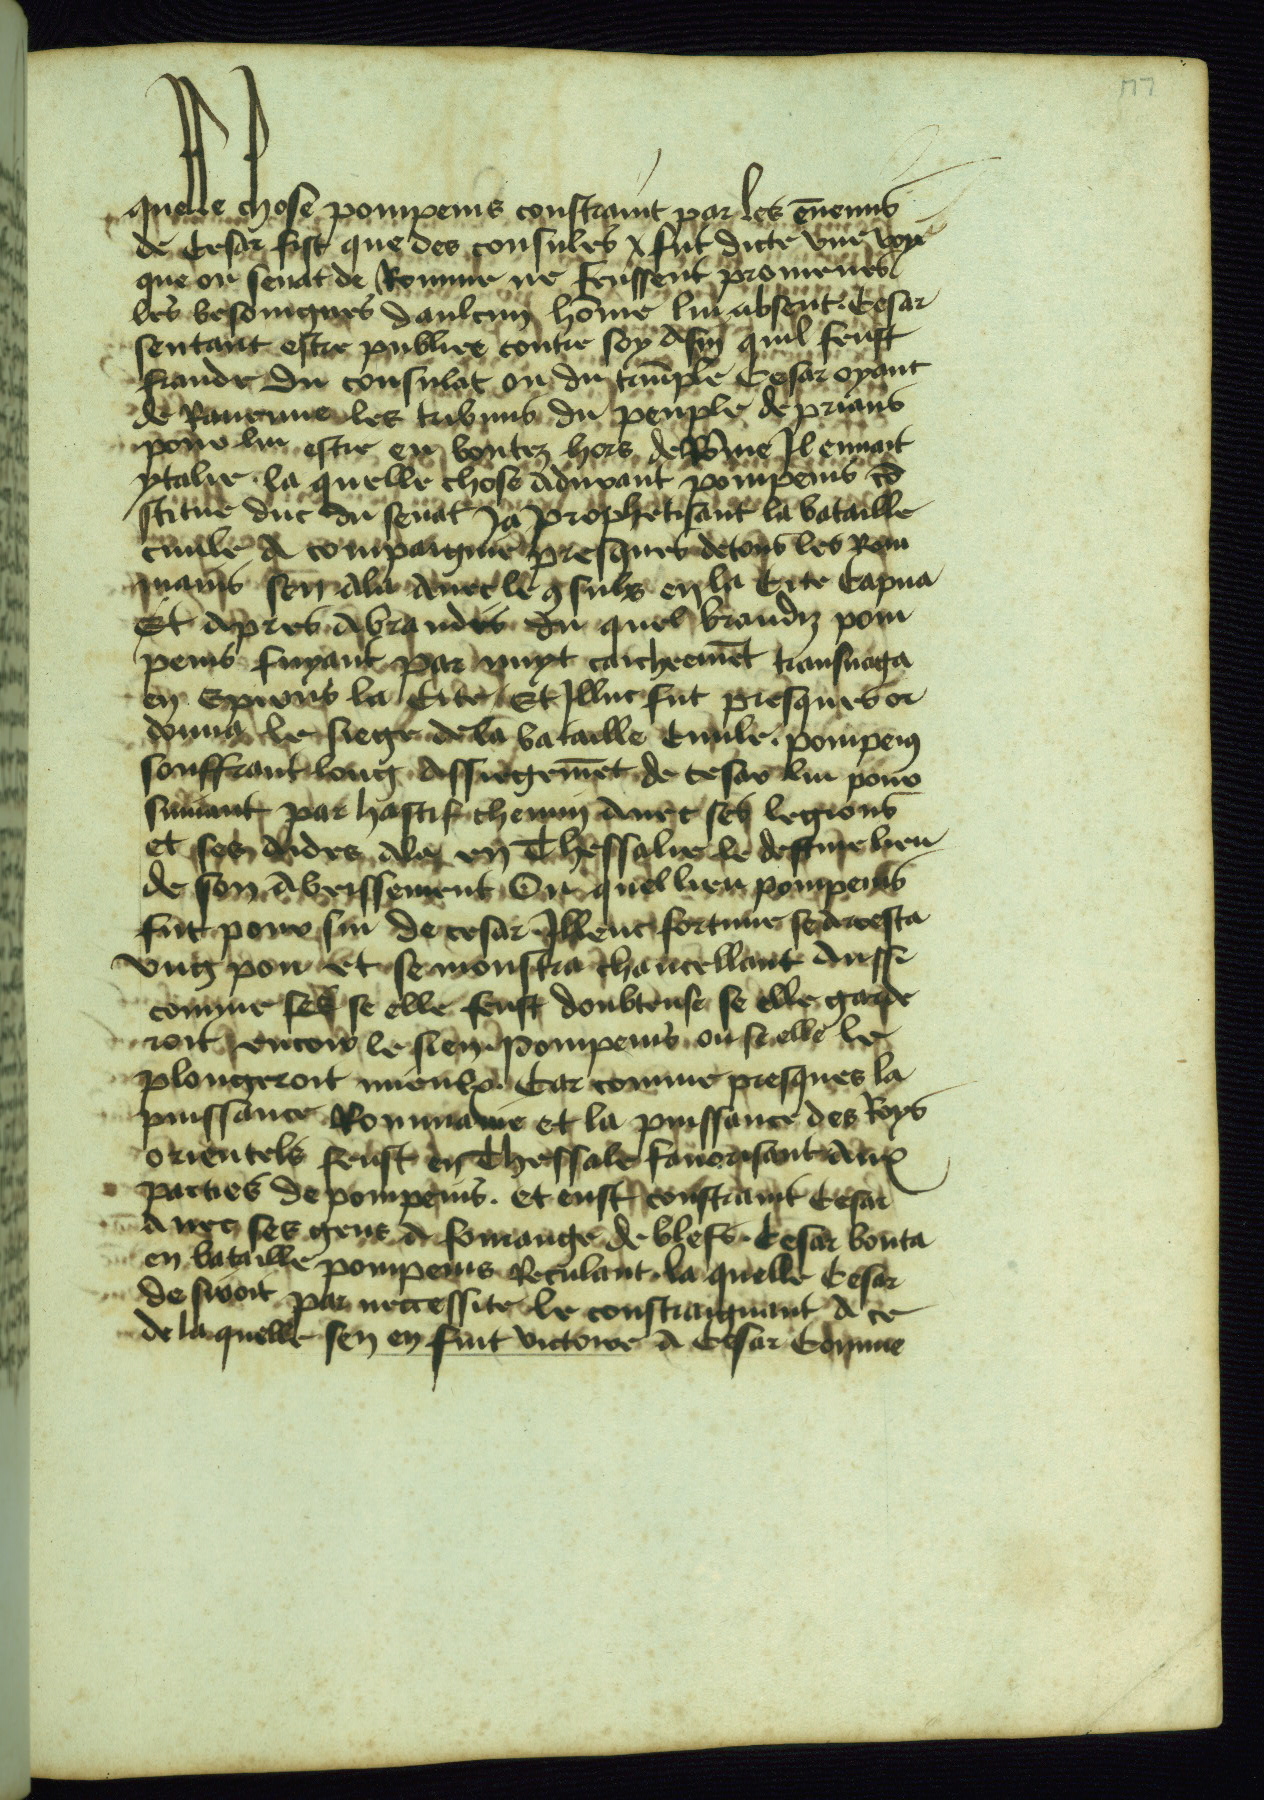 177
quelle chose pompeius constraint par les ēnemis
de Cesar fist que des consules x fut dicte une voye
que ou senat de Romme ne feussent promeues
les besoingnes daulcun hōme lui absent. Cesar
sentant estre publiee contre soy Afin quil feust
fraude du consulat ou du triūmple Cesar oyant
de Ravenne les tribuns du peuple deprians
pour lui estre en boutez hors de Rōme Il envait
ytalie. la quelle chose aduvant pompeius cō
stitue duc du senat Ja prophetisant la bataille
civile A compaignie presques de tous les Rom
mains sen Ala Avec le 9sulz en la Cite Capua
Et Apres A brandis du quel brandiz pom
peius fuyant par nuyt caicheemēt transnaga
en Epirus la Cite Et Illuc fut presques or
donna le siege de la bataille Civile. pompei9
souffrant long Assiegemēt de cesar lui pour
suivant par hastif chemin Avec ses legions
et ses Aides Ala en Thessalie le destine lieu
de son Abeissement Ou quel lieu pompeius
fut pour sui de cesar Illeuc fortune se Arresta
ung pou et se monstra chancellant Aussi
comme se elle feust doubteuse se elle garde
roit encore le sien Pompeius ou se elle le
plongeroit mieulx. Car comme presques la
puissance Rommaine et la puissance des Roys
orientels feust en Thessale favorisant Aux
parties de pompeius. et eust constraint Cesar
Avec ses gens A fomange de blefs. Cesar bouta
en bataille pompeius Reculant. la quelle Cesar
desiroit par neccessite le constraignant A ce
de la quelle sen en fuit victoire A Cesar Comme